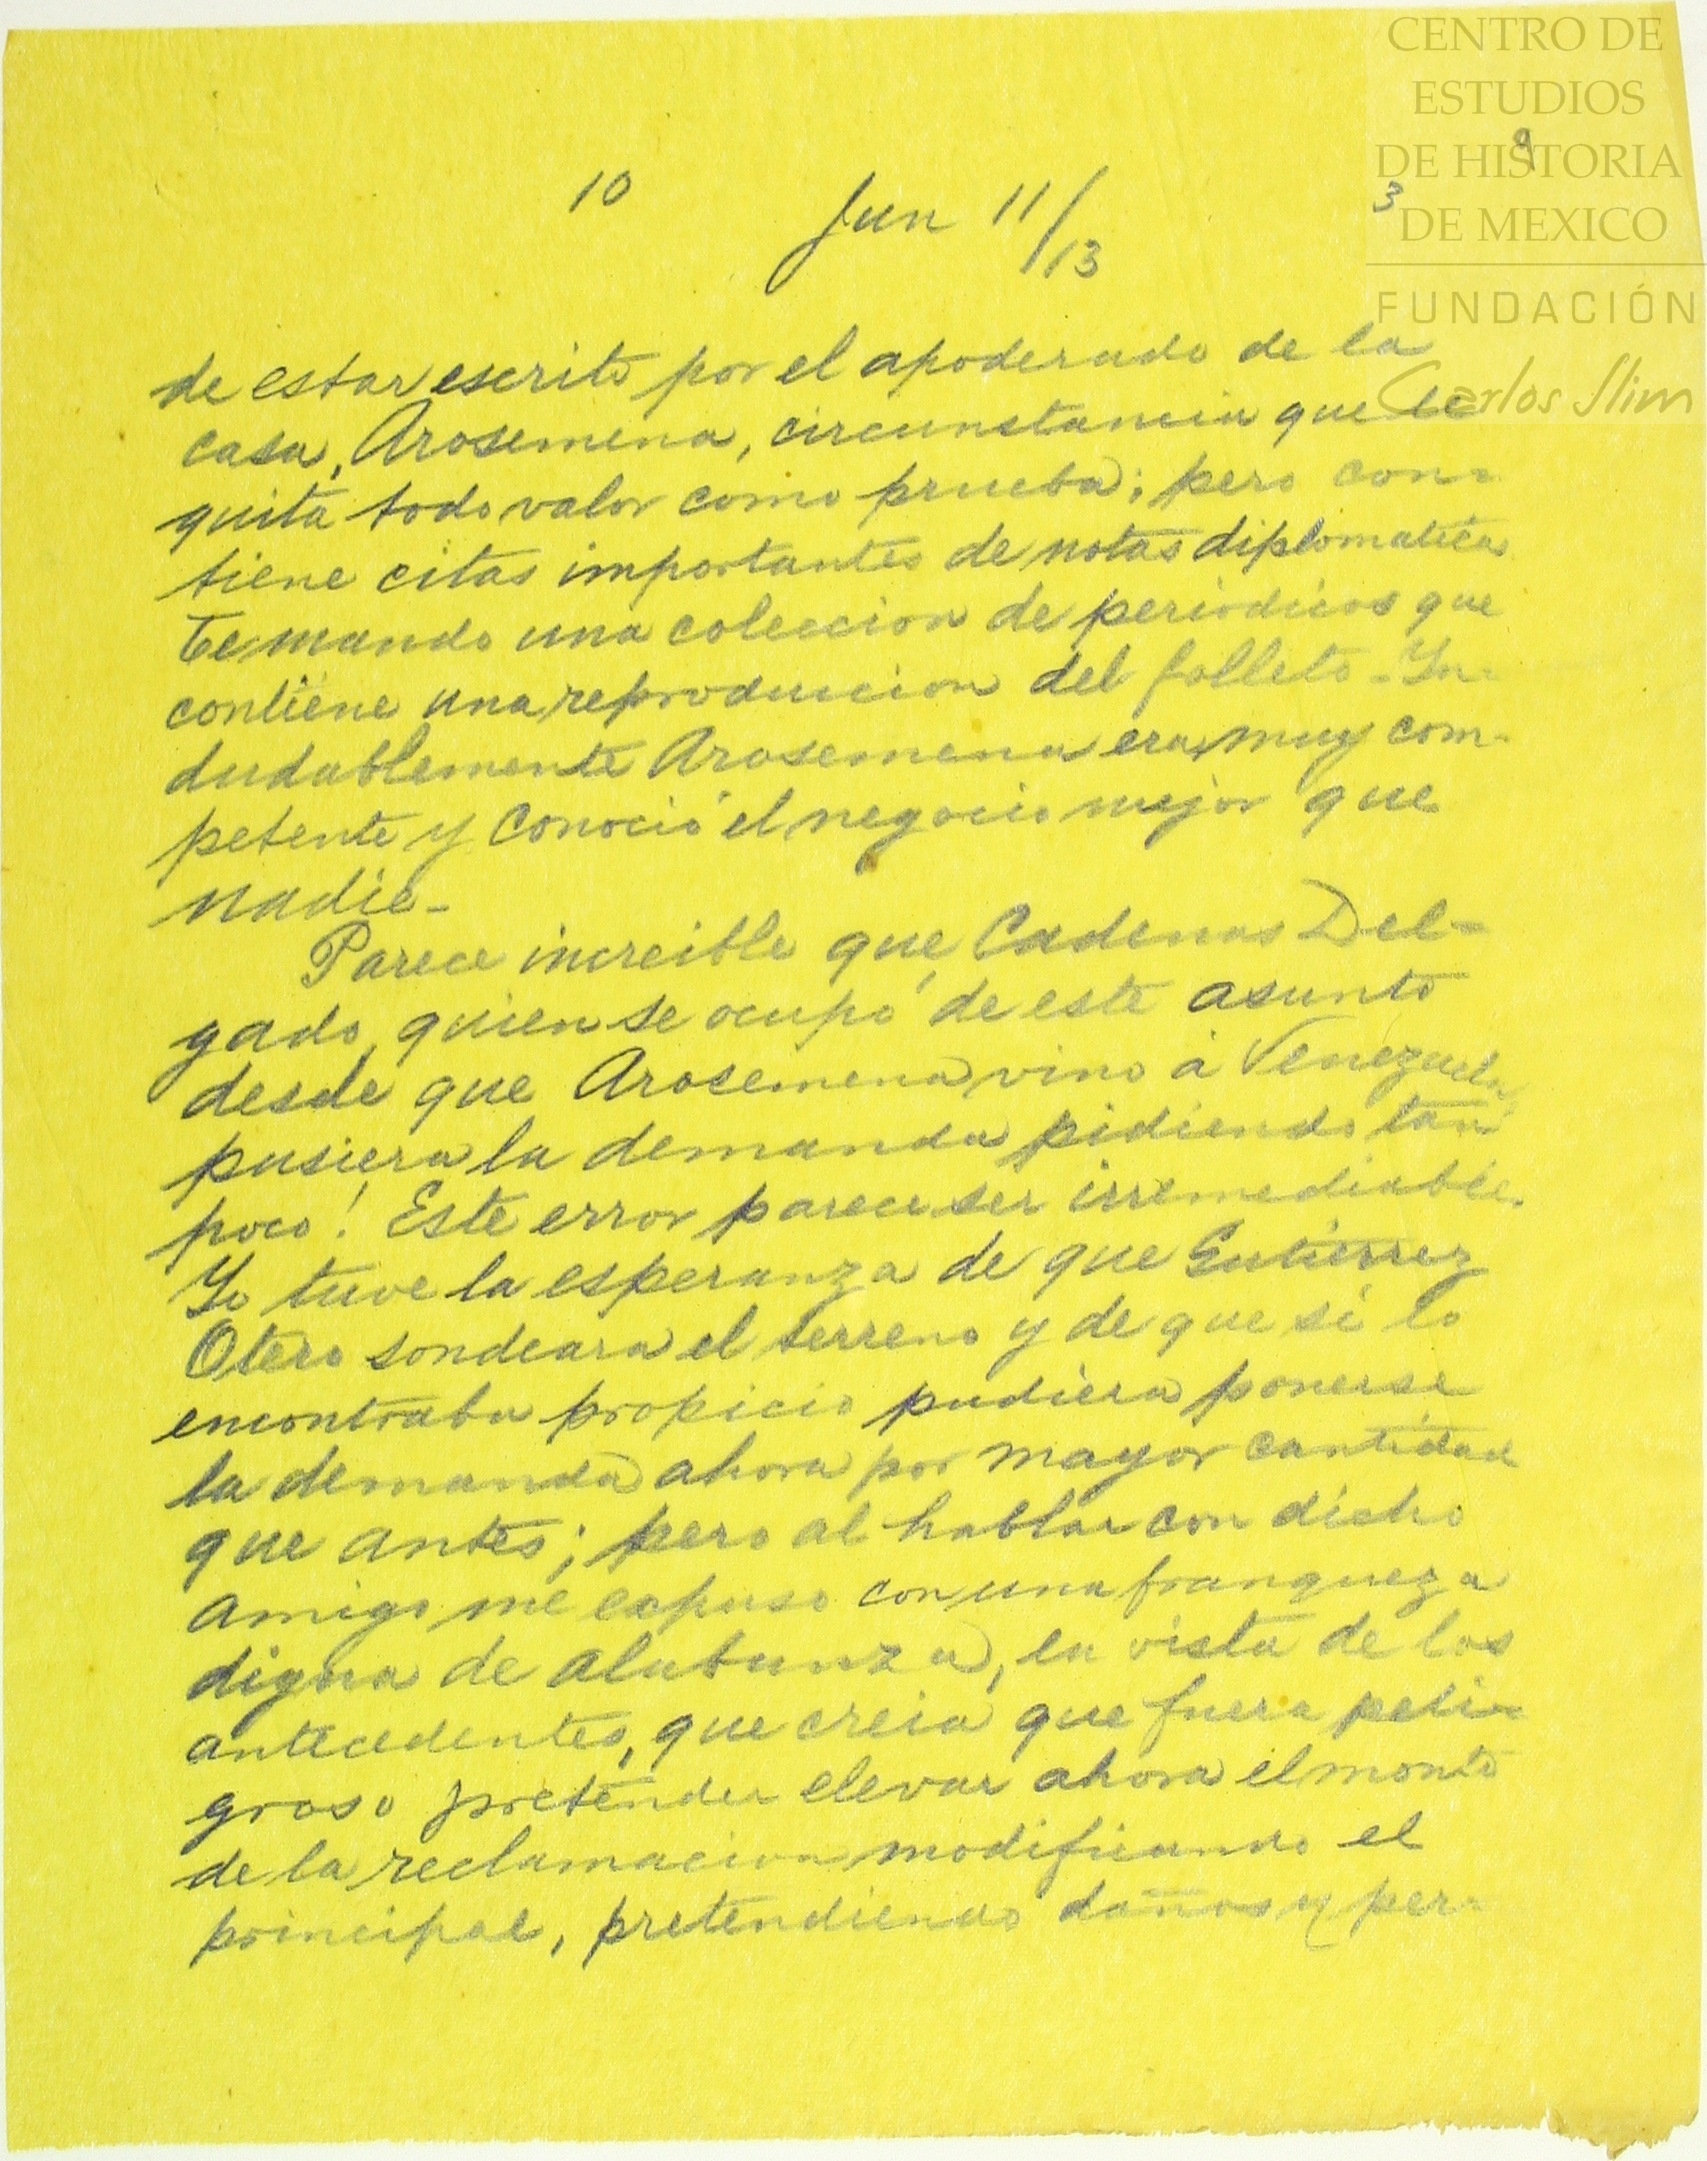 CENTRO DE
ESTUDIOS
DE HISTORIA
DE MEXICO
FUNDACIÓN
Carlos Slim
9
10 Jun 11/13 3
de estar escrito por el apoderado de la
casa, Arosemena, circunstancia que le
quita todo valor como prueba; pero con-
tiene citas importantes de notas diplomaticas
Te mando una coleccion de periodicos que
contiene una reproduccion del folleto - In-
dudablemente Arosemena era muy com-
petente y conoció el negocio mejor que
nadie -
Parece increible que Cadenas Del-
gado, quien se ocupó de este asunto
desde que Arosemena vino á Venezuela
pusiera la demanda pidiendo tan
poco! Este error parece ser irremediable.
Yo tuve la esperanza de que Gutierrez
Otero sondeara el terreno y de que si lo
encontraba propicio pudiera ponerse
la demanda ahora por mayor cantidad
que antes; pero al hablar con dicho
amigo me expuso con una franqueza
digna de alabanza, en vista de los
antecedentes, que creia que fuera peli-
groso pretender elevar ahora el monto
de la reclamacion modificando el
principal, pretendiendo daños y per-